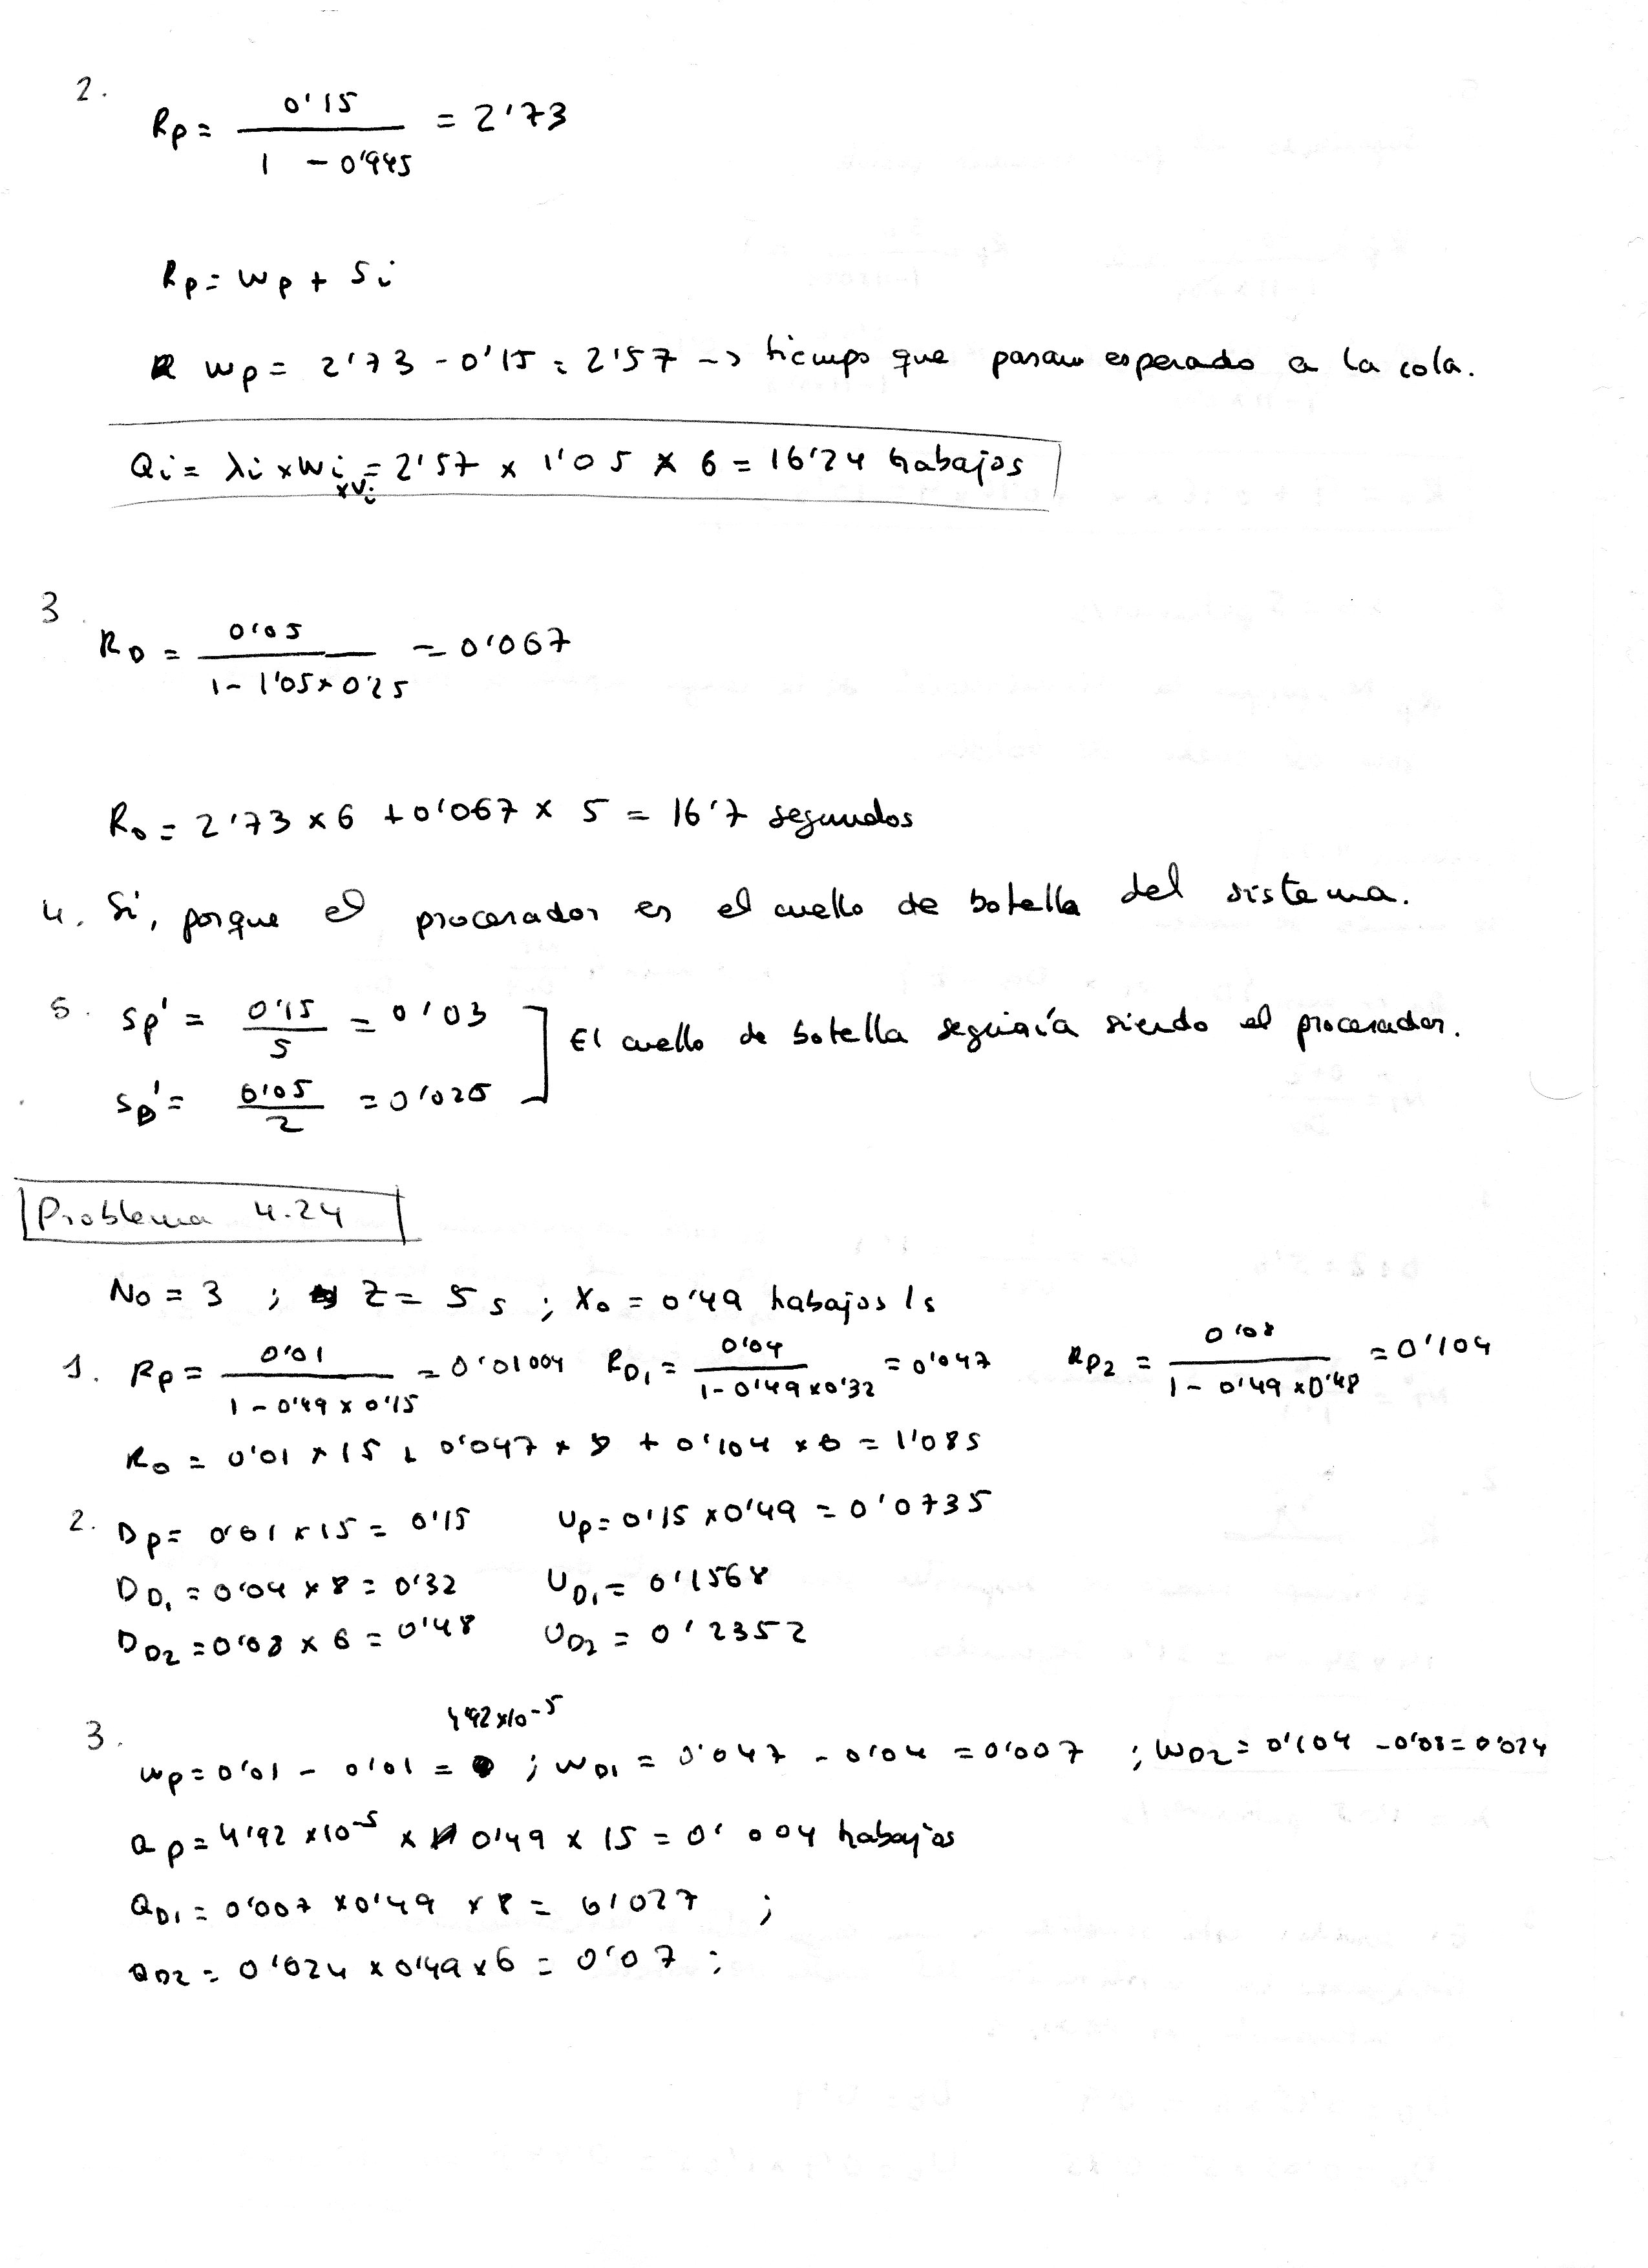 2.
Rp = 0'15 / (1 - 0'945) = 2'73
Rp = Wp + Si
Wp = 2'73 - 0'15 = 2'57 -> tiempo que pasan esperado a la cola.
Qi = λi x Wi x Vi = 2'57 x 1'05 x 6 = 16'24 trabajos
3.
RD = 0'05 / (1 - 1'05 x 0'25) = 0'067
Ro = 2'73 x 6 + 0'067 x 5 = 16'7 segundos
4. Sí, porque el procesador es el cuello de botella del sistema.
5. Sp' = 0'15 / 5 = 0'03
SD' = 0'05 / 2 = 0'025
El cuello de botella seguiría siendo el procesador.
Problema 4.24
No = 3 ; Z = 5 s ; Xo = 0'49 trabajos/s
1. Rp = 0'01 / (1 - 0'49 x 0'15) = 0'01004 RD1 = 0'04 / (1 - 0'49 x 0'32) = 0'047 RP2 = 0'08 / (1 - 0'49 x 0'48) = 0'104
Ro = 0'01 x 15 + 0'047 x 8 + 0'104 x 6 = 1'085
2. Dp = 0'01 x 15 = 0'15 Up = 0'15 x 0'49 = 0'0735
DD1 = 0'04 x 8 = 0'32 UD1 = 0'1568
DD2 = 0'08 x 6 = 0'48 UD2 = 0'2352
3.
4'92 x 10^-5
Wp = 0'01 - 0'01 = ; WD1 = 0'047 - 0'04 = 0'007 ; WD2 = 0'104 - 0'08 = 0'024
Qp = 4'92 x 10^-5 x 0'49 x 15 = 0'004 trabajos
QD1 = 0'007 x 0'49 x 8 = 0'027 ;
QD2 = 0'024 x 0'49 x 6 = 0'07 ;